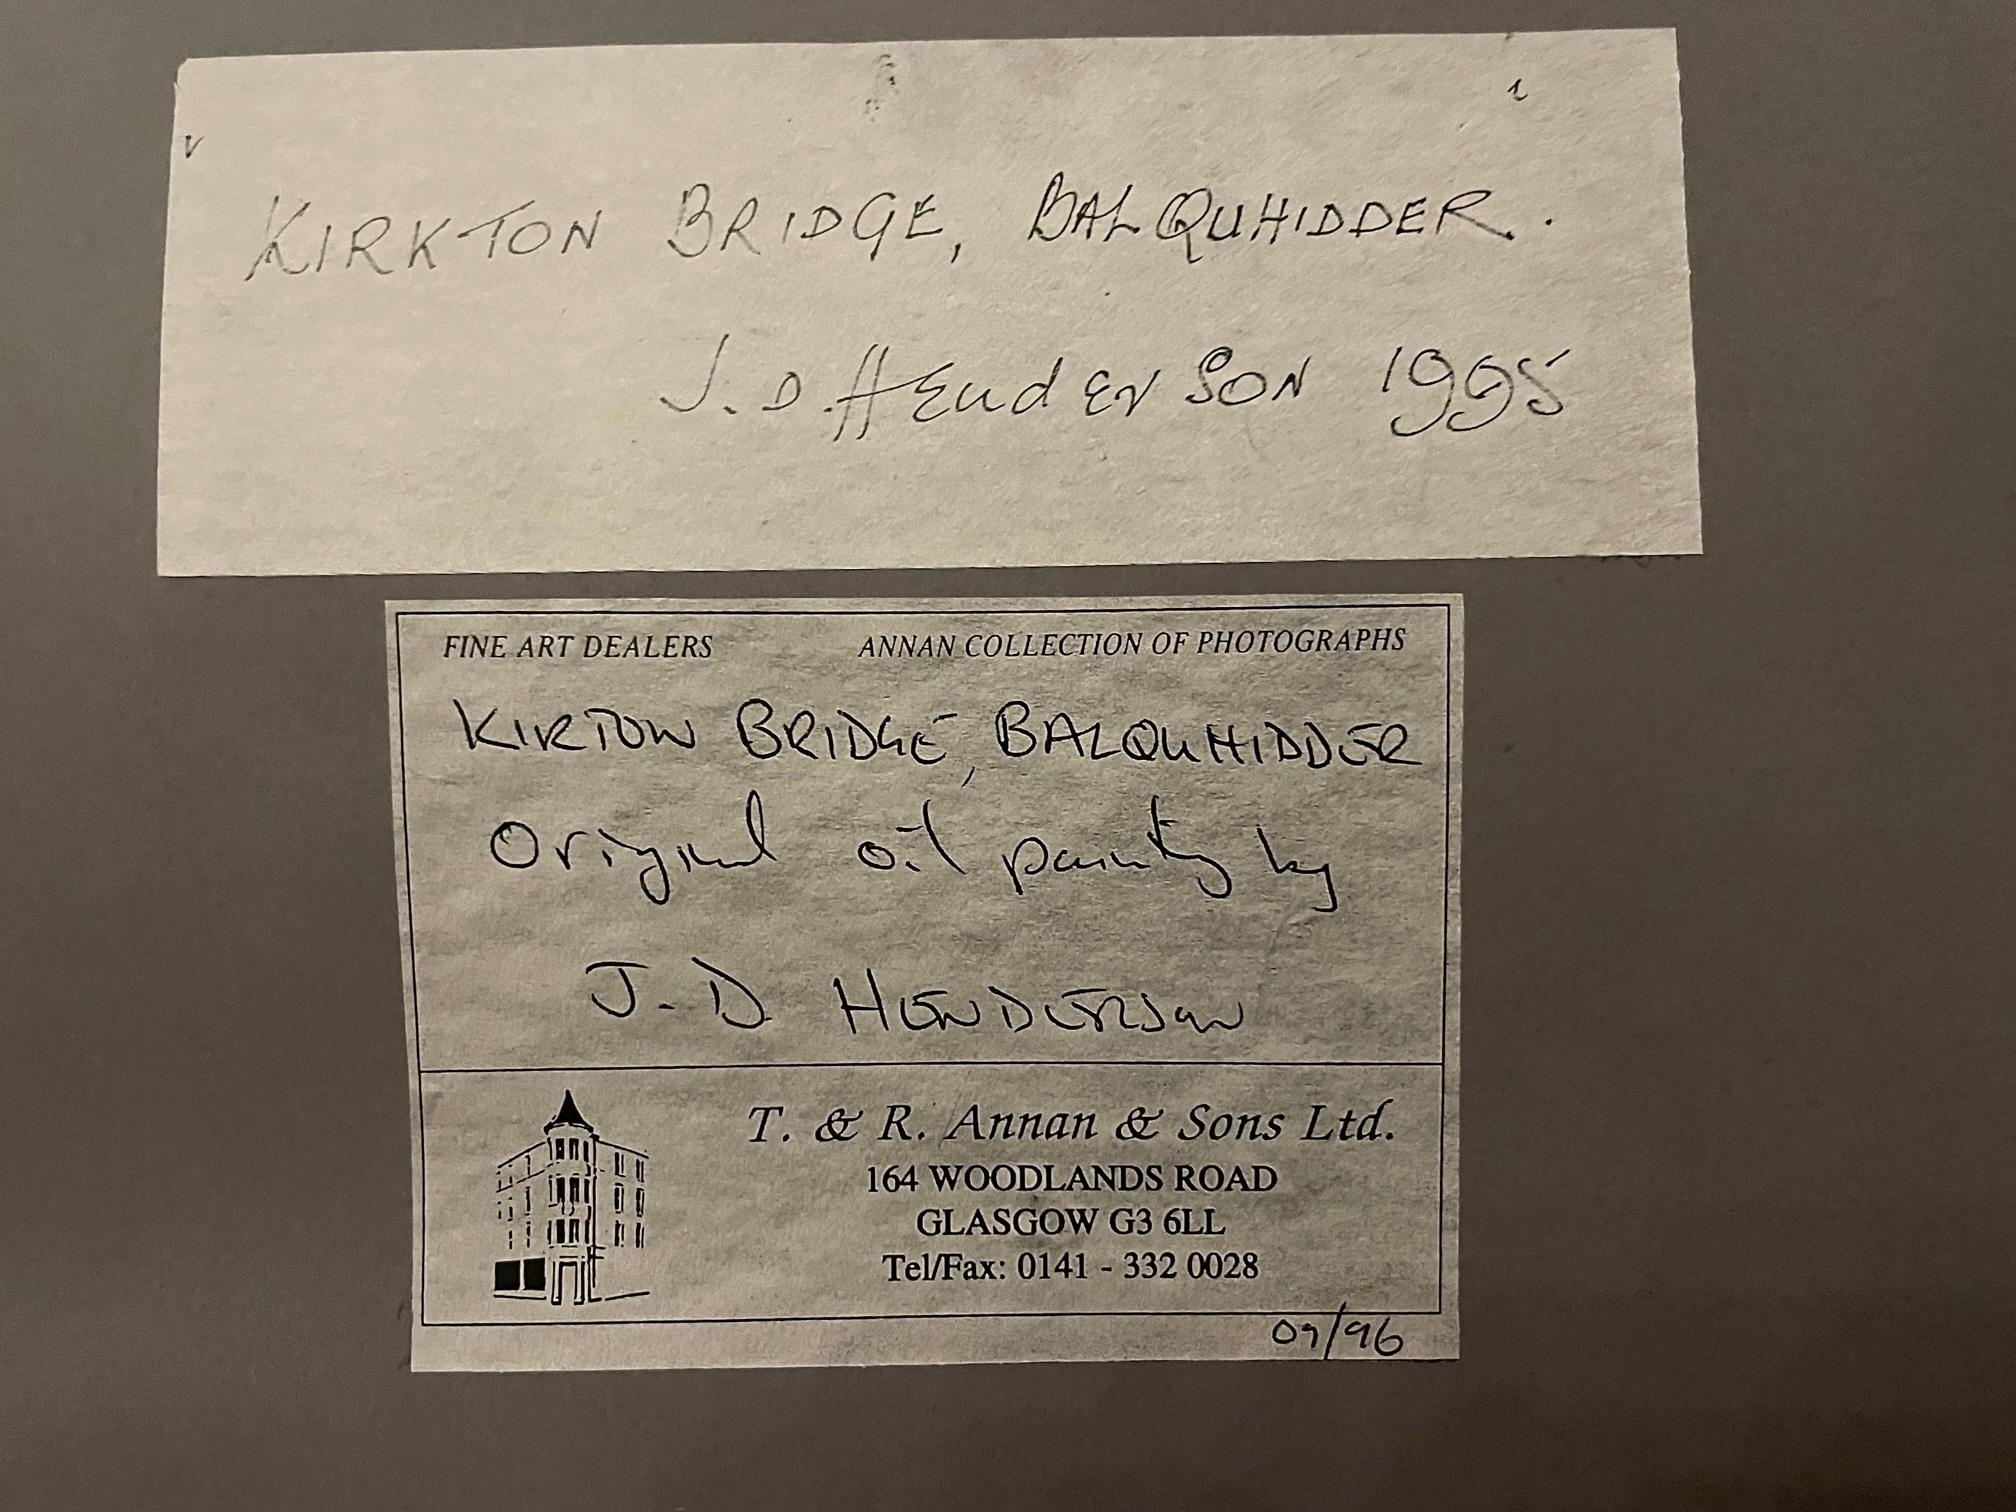 KIRKTON BRIDGE, BALQUHIDDER.
J. D. HENDERSON 1995
FINE ART DEALERS ANNAN COLLECTION OF PHOTOGRAPHS
KIRTON BRIDGE, BALQUHIDDER
Original oil painting by
J. D. HENDERSON
T. & R. Annan & Sons Ltd.
164 WOODLANDS ROAD
GLASGOW G3 6LL
Tel/Fax: 0141 - 332 0028
09/96